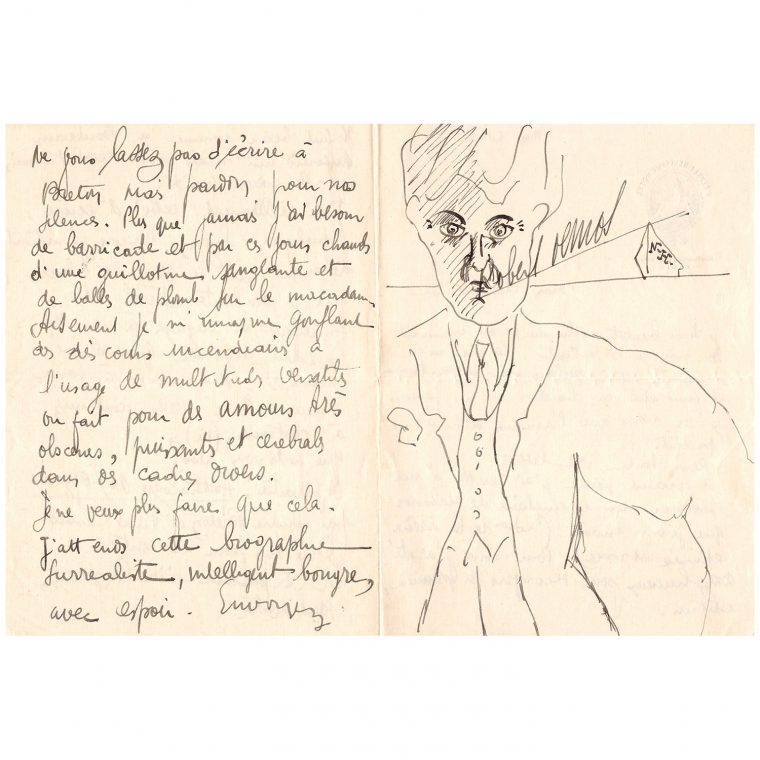 Ne vous lassez pas d'écrire à
Breton mais pardon pour nos
silences. Plus que jamais j'ai besoin
de barricade et par ces jours chauds
d'une guillotine sanglante et
de balles de plomb sur le macadam.
Aisément je m'imagine gonflant
des discours incendiaires à
l'usage de multitudes versatiles
ou fait pour des amours très
obscènes, puissants et cérébrals
dans des cadres divers.
Je ne veux plus faire que cela.
J'attends cette biographie
surréaliste, intelligent bougre,
avec espoir. Envoyez
Robert Desnos